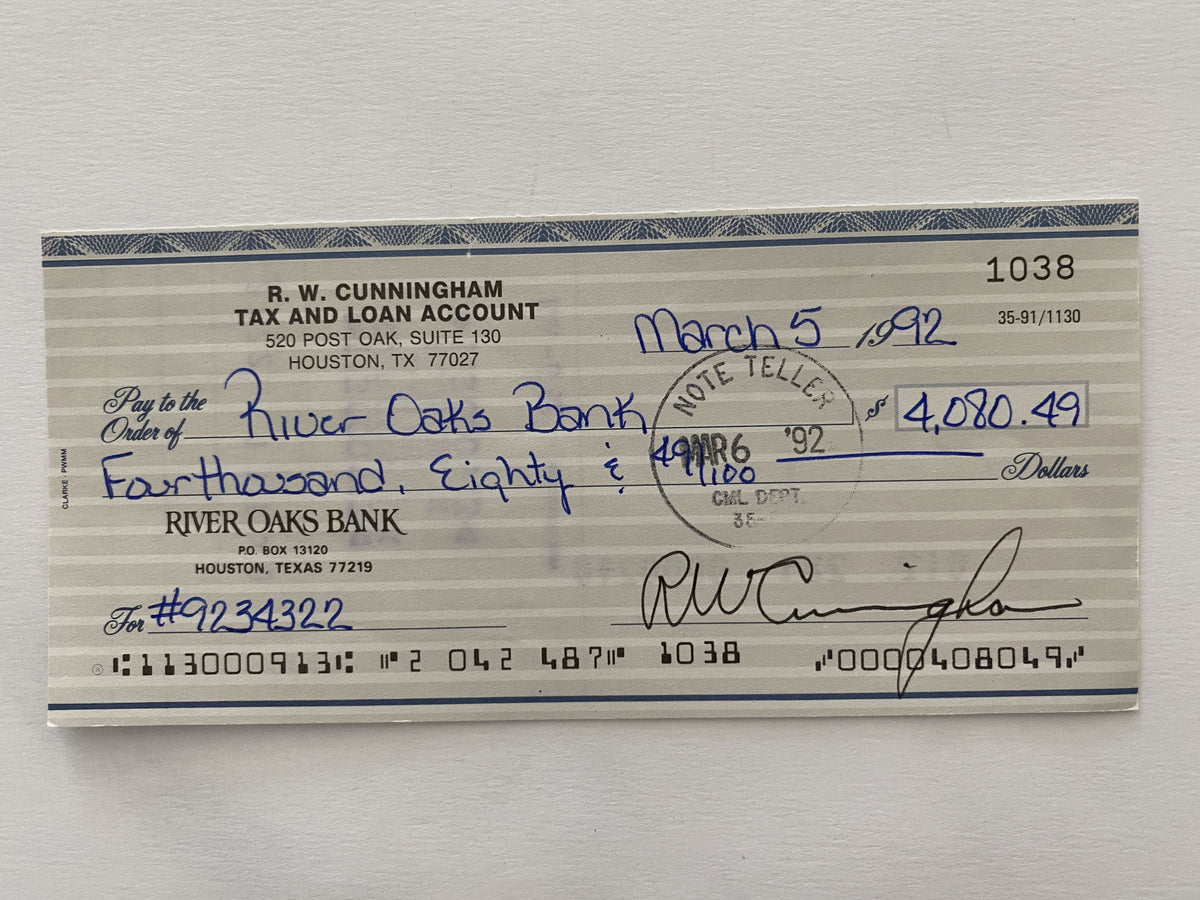 1038
R. W. CUNNINGHAM
TAX AND LOAN ACCOUNT
520 POST OAK, SUITE 130
HOUSTON, TX 77027
March 5 1992
35-91/1130
NOTE TELLER
MAR 6 '92
CML DEPT.
35-
Pay to the
Order of River Oaks Bank $ 4,080.49
Four thousand, Eighty & 49/100 Dollars
CLARKE - PWMM
RIVER OAKS BANK
P.O. BOX 13120
HOUSTON, TEXAS 77219
For #9234322
RW Cunningham
⑆113000913⑆ ⑈2 042 487⑈ 1038 ⑇0000408049⑇